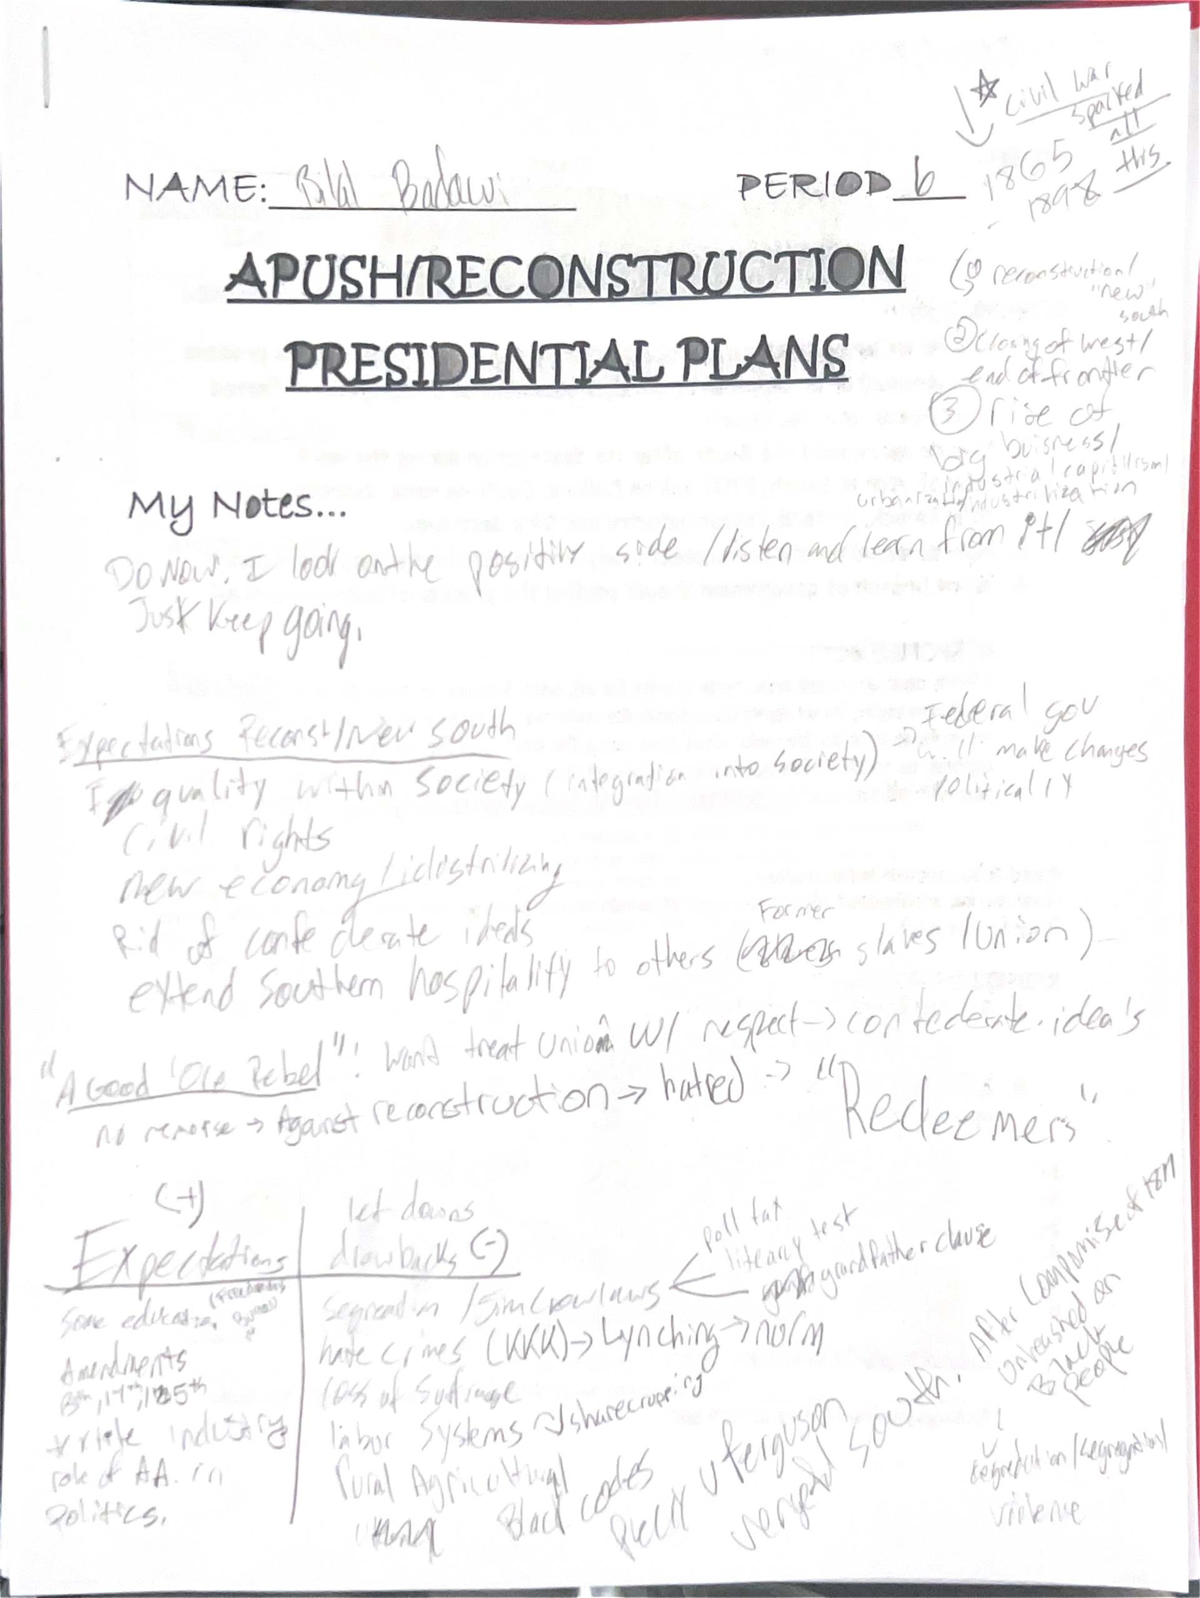 ☆ Civil War
sparked
all
this
1865
1898
NAME: Bilal Badawi
PERIOD 6
APUSH/RECONSTRUCTION
PRESIDENTIAL PLANS
① reconstruction/
"new"
south
② closing of West/
end of frontier
③ rise of
big buisness/
industrial capitilism/
urbanization/industrilization
My Notes...
Do now. I look on the positive side / listen and learn from it/
Just keep going.
Expectations Reconst/New South
quality within society (integration into society) → Federal gov
'll make changes
politically
Civil rights
new economy/idustrilizing
Rid of confederate ideas
extend Southern hospitality to others (Former slaves /Union)
"A Good 'Ole Rebel": Want treat union w/ respect → confederate idea's
no remorse → Against reconstruction → hatred → "Redeemers"
(+)
Expectations
Some education (Freedmens Bureau)
Amendments
13th, 14th, 15th
industry
role of A.A. in
Politics.
let downs
drawbacks (-)
poll tax
literacy test
grandfather clause
/Jim Crow laws
hate crimes (KKK) → Lynching → norm
loss of suffrage
labor Systems → sharecropping
Rural Agricultural
Black codes
v ferguson
vengeful South.
After Compromise of 1877
Unleashed on
Black
people
violence